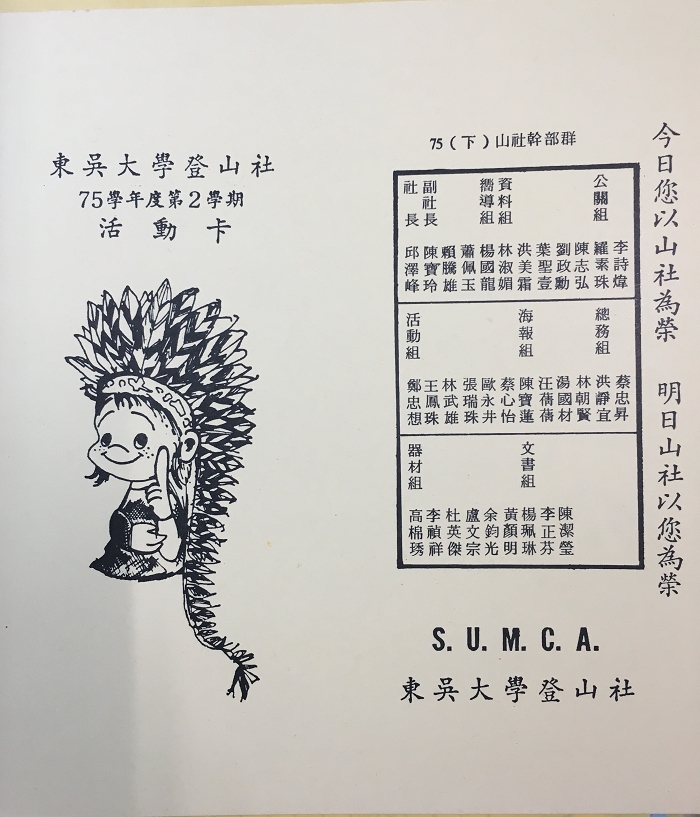 東吳大學登山社
75學年度第2學期
活動卡
今日您以山社為榮　明日山社以您為榮
75（下）山社幹部群
李詩煒
公關組 羅素珠
陳志弘
劉政勳
葉聖壹
洪美霜
資料組 林淑媚
嚮導組 楊國龍
蕭佩玉
賴騰雄
副社長 陳寶玲
社長 邱澤峰
蔡忠昇
總務組 洪諍宜
林朝賢
湯國材
汪蒨蒨
海報組 陳寶蓮
蔡心怡
歐永井
張瑞珠
林武雄
王鳳珠
活動組 鄭忠想
陳潔瑩
李正芬
文書組 楊珮琳
黃顏明
余鈞光
盧文宗
杜英傑
李禎祥
器材組 高棉琇
S. U. M. C. A.
東吳大學登山社